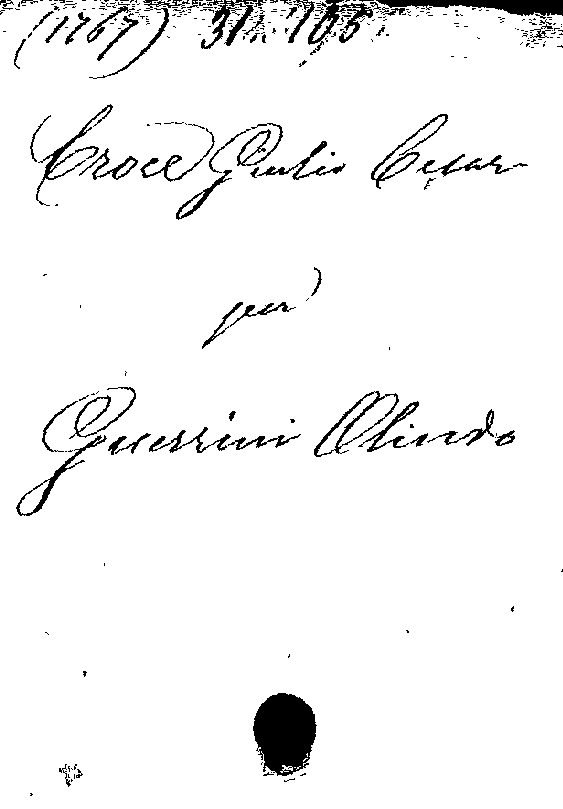 (1767) 31..105.
Croce Giulio Cesar
per
Guerrini Olindo